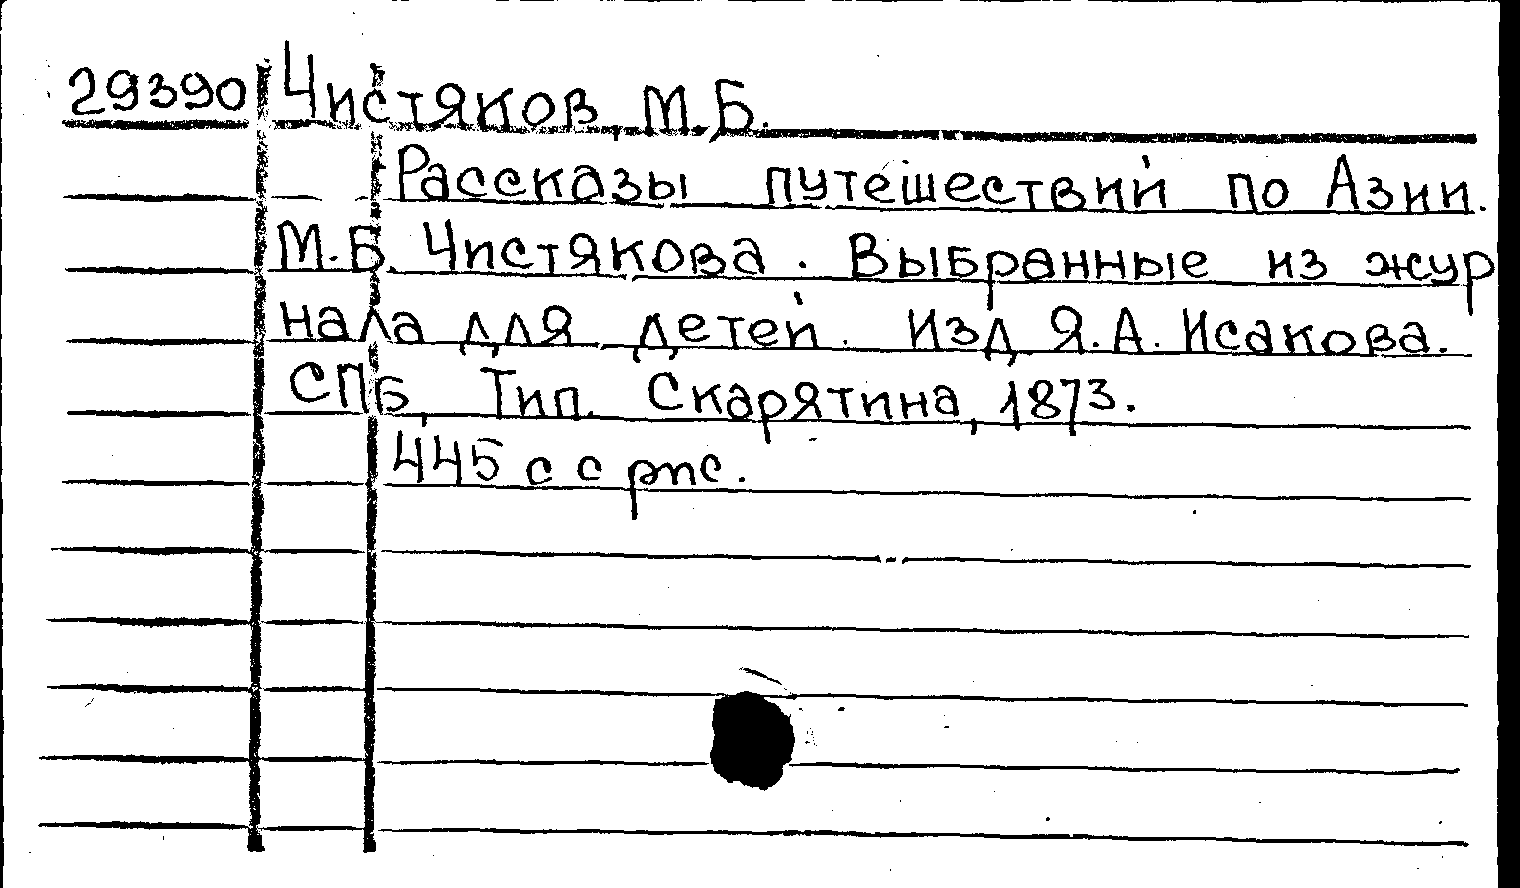 29390 Чистяков, М.Б.
Рассказы путешествий по Азии.
М.Б. Чистякова. Выбранные из жур
нала для детей. Изд Я.А. Исакова.
СПБ, Тип. Скарятина, 1873.
445 с с рис.